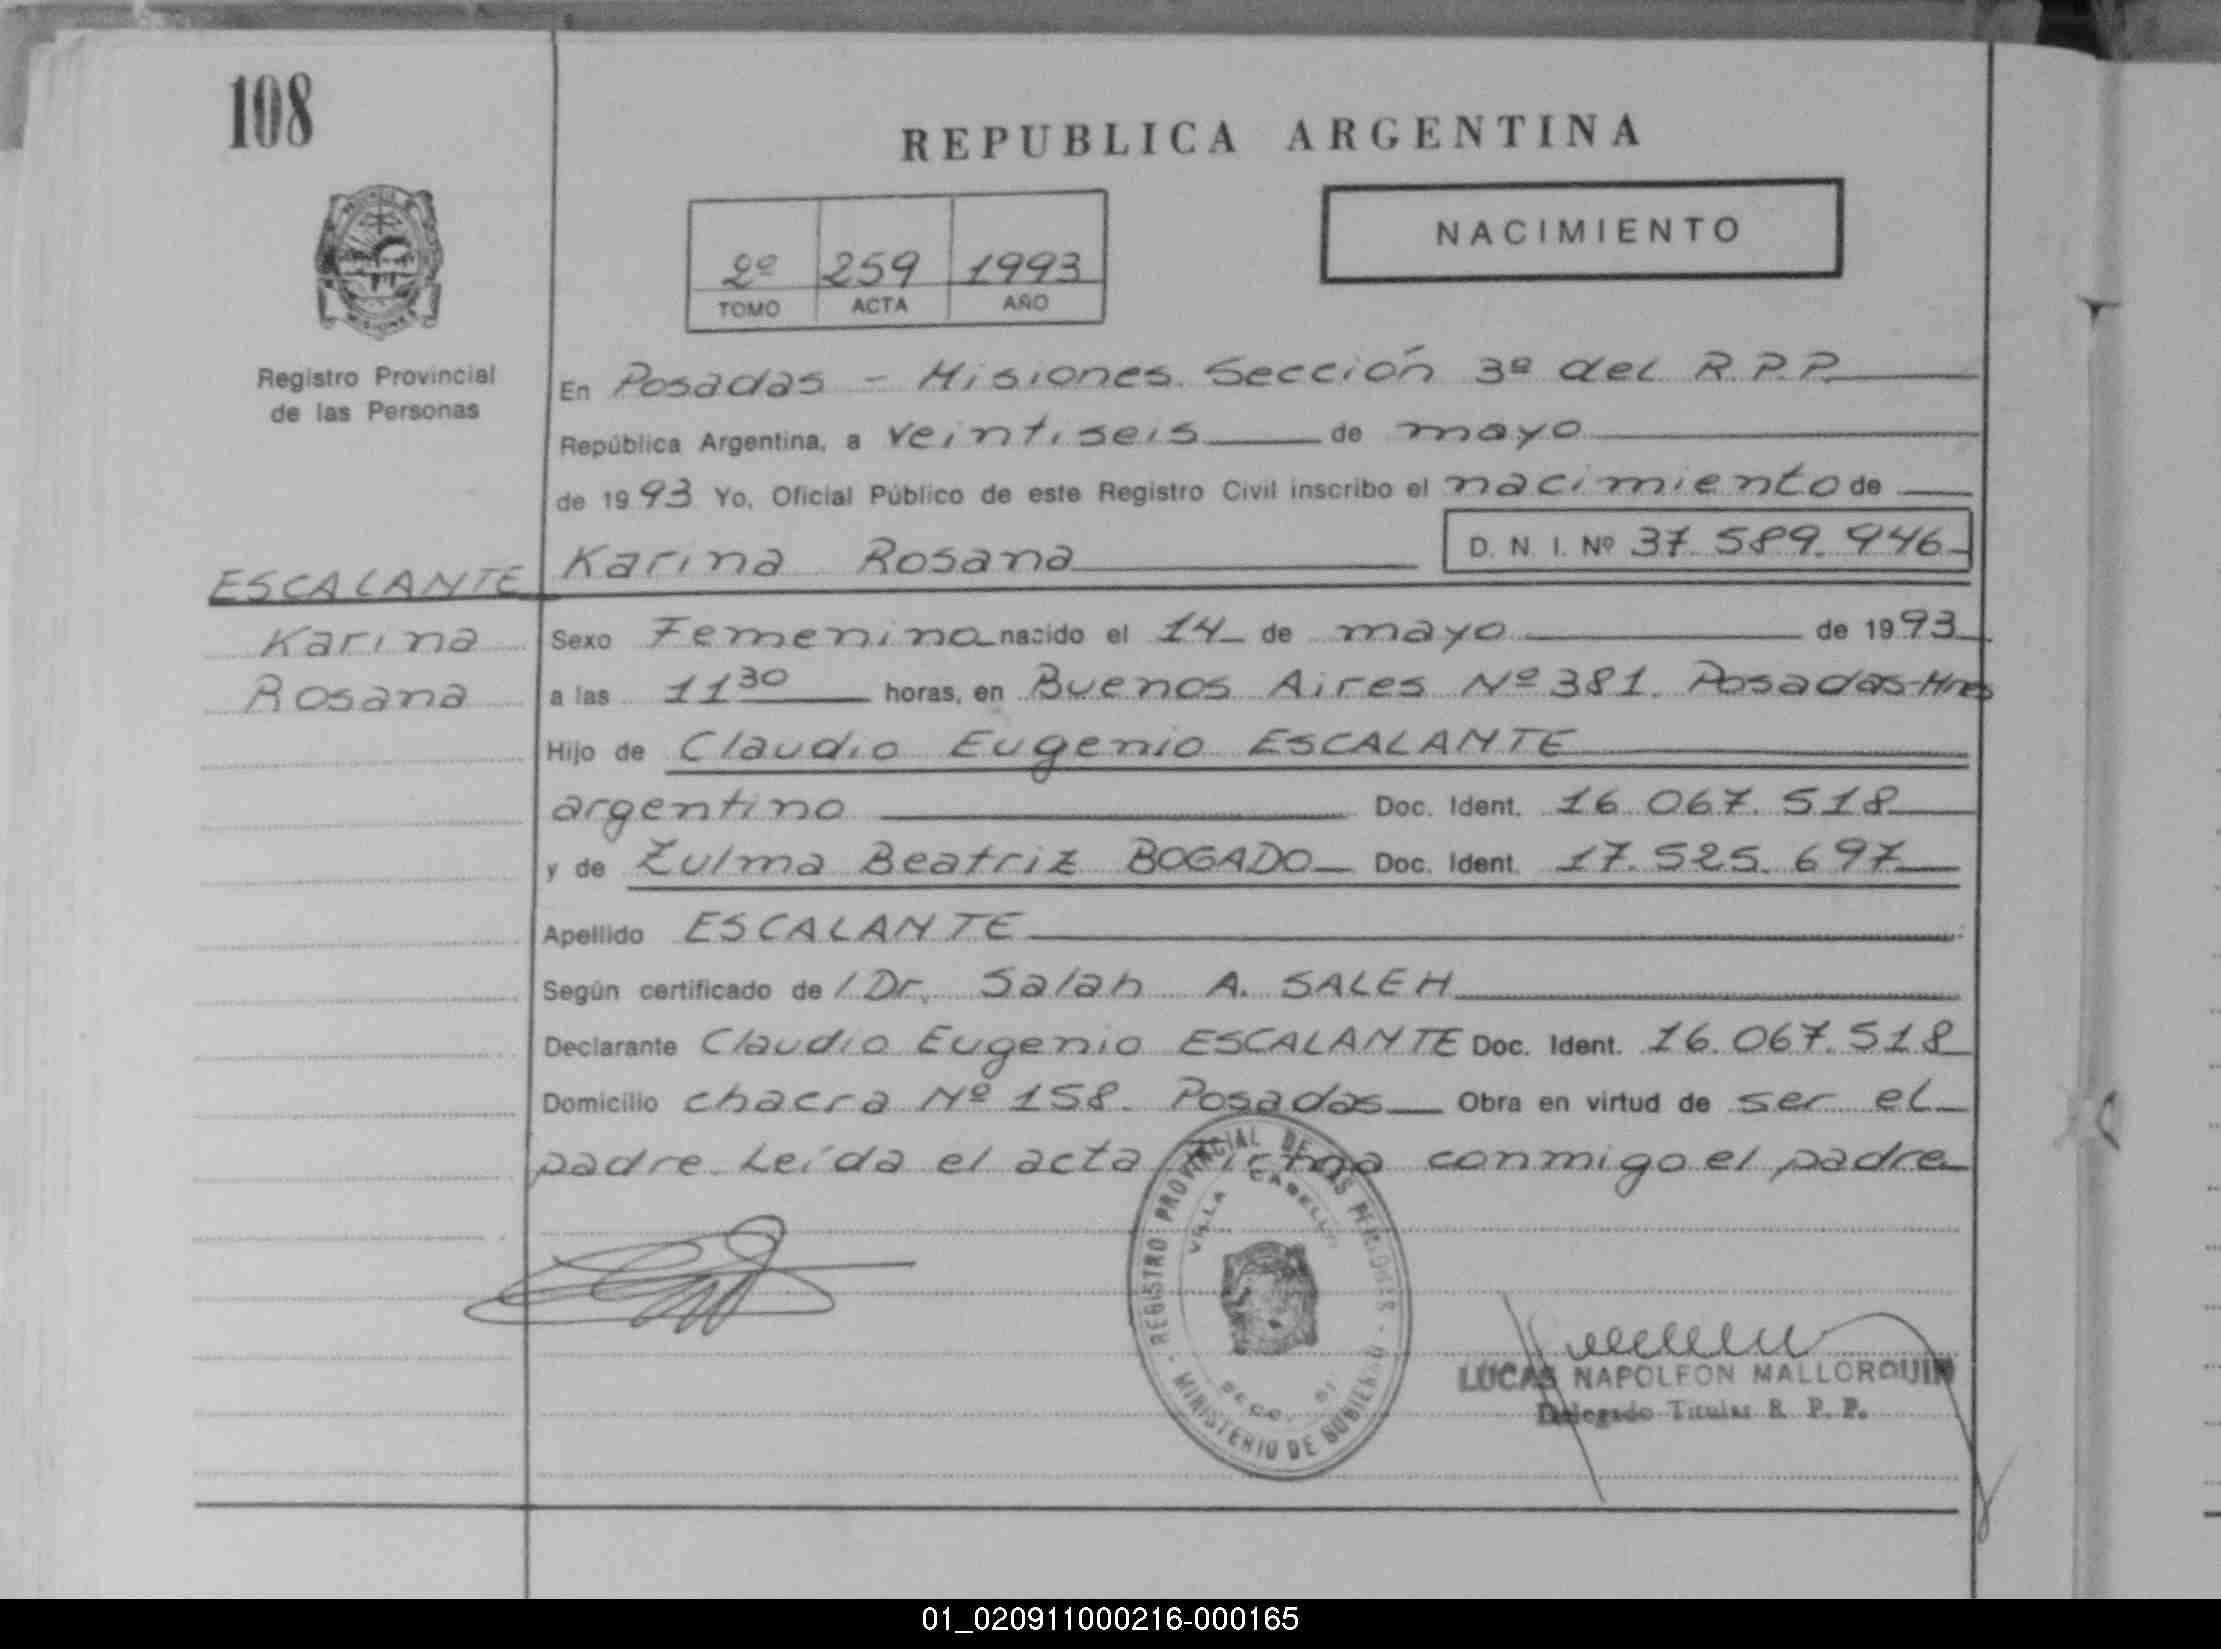 108
REPUBLICA ARGENTINA
NACIMIENTO
2º 259 1993
TOMO ACTA AÑO
MISIONES
Registro Provincial
de las Personas
En Posadas - Misiones. Sección 3ª del R.P.P.
República Argentina, a veintiseis de mayo
de 1993 Yo, Oficial Público de este Registro Civil inscribo el nacimiento de
Karina Rosana D. N. I. Nº 37.589.946
ESCALANTE
Karina
Rosana
Sexo Femenino nacido el 14 de mayo de 1993
a las 11 30 horas, en Buenos Aires Nº 381. Posadas-Mnes
Hijo de Claudio Eugenio ESCALANTE
argentino Doc. Ident. 16.067.518
y de Zulma Beatriz BOGADO Doc. Ident. 17.525.697
Apellido ESCALANTE
Según certificado de / Dr. Salah A. SALEH
Declarante Claudio Eugenio ESCALANTE Doc. Ident. 16.067.518
Domicilio chacra Nº 158. Posadas Obra en virtud de ser el
padre. Leída el acta firma conmigo el padre
REGISTRO PROVINCIAL DE LAS PERSONAS - MINISTERIO DE GOBIERNO -
VILLA CABELLO
LUCAS NAPOLEON MALLORQUIN
Delegado Titular R. P. P.
01_020911000216-000165